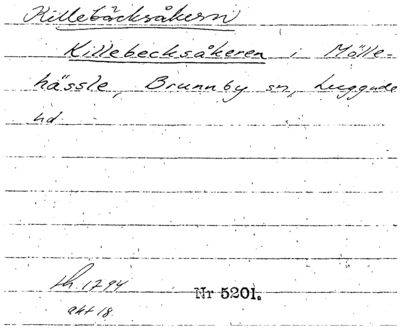 Killebäcksåkern
Killebecksåkeren i Mölle-
hässle, Brunnby sn, Luggude
hd.
Lh. 1794
akt 18
Nr 5201.